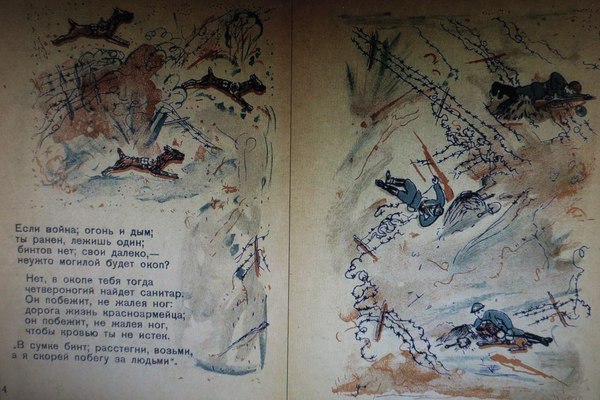 Если война; огонь и дым;
ты ранен, лежишь один;
бинтов нет; свои далеко,—
неужто могилой будет окоп?
Нет, в окопе тебя тогда
четвероногий найдет санитар.
Он побежит, не жалея ног:
дорога жизнь красноармейца;
он побежит, не жалея ног,
чтобы кровью ты не истек.
„В сумке бинт; расстегни, возьми,
а я скорей побегу за людьми“.
4